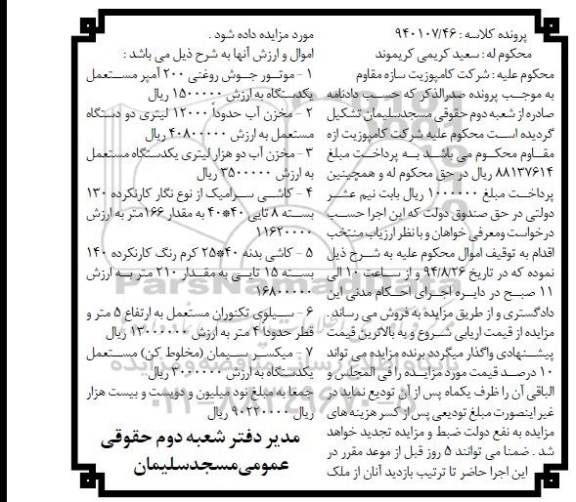 پرونده کلاسه : ۹۴۰۱۰۷/۴۶
محکوم له : سعید کریمی کریموند
محکوم علیه : شرکت کامپوزیت سازه مقاوم
به موجب پرونده صدرالذکر که حسب دادنامه
صادره از شعبه دوم حقوقی مسجدسلیمان تشکیل
گردیده است محکوم علیه شرکت کامپوزیت ازه
مقاوم محکوم می باشد به پرداخت مبلغ
۸۸۱۳۷۶۱۴ ریال در حق محکوم له و همچینین
پرداخت مبلغ ۱۰۰۰۰۰۰ ریال بابت نیم عشر
دولتی در حق صندوق دولت که این اجرا حسب
درخواست ومعرفی خواهان و با نظر ارزیاب منتخب
اقدام به توقیف اموال محکوم علیه به شرح ذیل
نموده که در تاریخ ۹۴/۸/۲۶ و از ساعت ۱۰ الی
۱۱ صبح در دایره اجرای احکام مدنی این
دادگستری و از طریق مزایده به فروش می رساند .
مزایده از قیمت اریابی شروع و به بالاترین قیمت
پیشنهادی واگذار میگردد برنده مزایده می تواند
۱۰ درصد قیمت مورد مزایده را فی المجلس و
الباقی آن را ظرف یکماه پس از آن تودیع نماید در
غیر اینصورت مبلغ تودیعی پس از کسر هزینه های
مزایده به نفع دولت ضبط و مزایده تجدید خواهد
شد . ضمنا می توانند ۵ روز قبل از موعد مقرر در
این اجرا حاضر تا ترتیب بازدید آنان از ملک
مورد مزایده داده شود .
اموال و ارزش آنها به شرح ذیل می باشد :
۱ - موتور جوش روغنی ۲۰۰ آمپر مستعمل
یکدستگاه به ارزش ۱۵۰۰۰۰۰ ریال
۲ - مخزن آب حدوداً ۱۲۰۰۰ لیتری دو دستگاه
مستعمل به ارزش ۴۰۸۰۰۰۰۰ ریال
۳ - مخزن آب دو هزار لیتری یکدستگاه مستعمل
به ارزش ۳۵۰۰۰۰۰ ریال
۴ - کاشی سرامیک از نوع نگار کارنکرده ۱۳۰
بسته ۸ تایی ۴۰*۴۰ به مقدار ۱۶۶متر به ارزش
۱۱۶۲۰۰۰۰
۵ - کاشی بدنه ۴۰*۲۵ کرم رنگ کارنکرده ۱۴۰
بسته ۱۵ تایی به مقدار ۲۱۰ متر به ارزش
۱۶۸۰۰۰۰۰
۶ - سیلوی تکنوران مستعمل به ارتفاع ۵ متر و
قطر حدوداً ۴ متر به ارزش ۱۳۰۰۰۰۰۰ ریال
۷ - میکسر سیمان (مخلوط کن) مستعمل
یکدستگاه به ارزش ۳۰۰۰۰۰۰ ریال
جمعا به مبلغ نود میلیون و دویست و بیست هزار
ریال ۹۰۲۲۰۰۰۰
مدیر دفتر شعبه دوم حقوقی
عمومی مسجدسلیمان
ParsNamadData